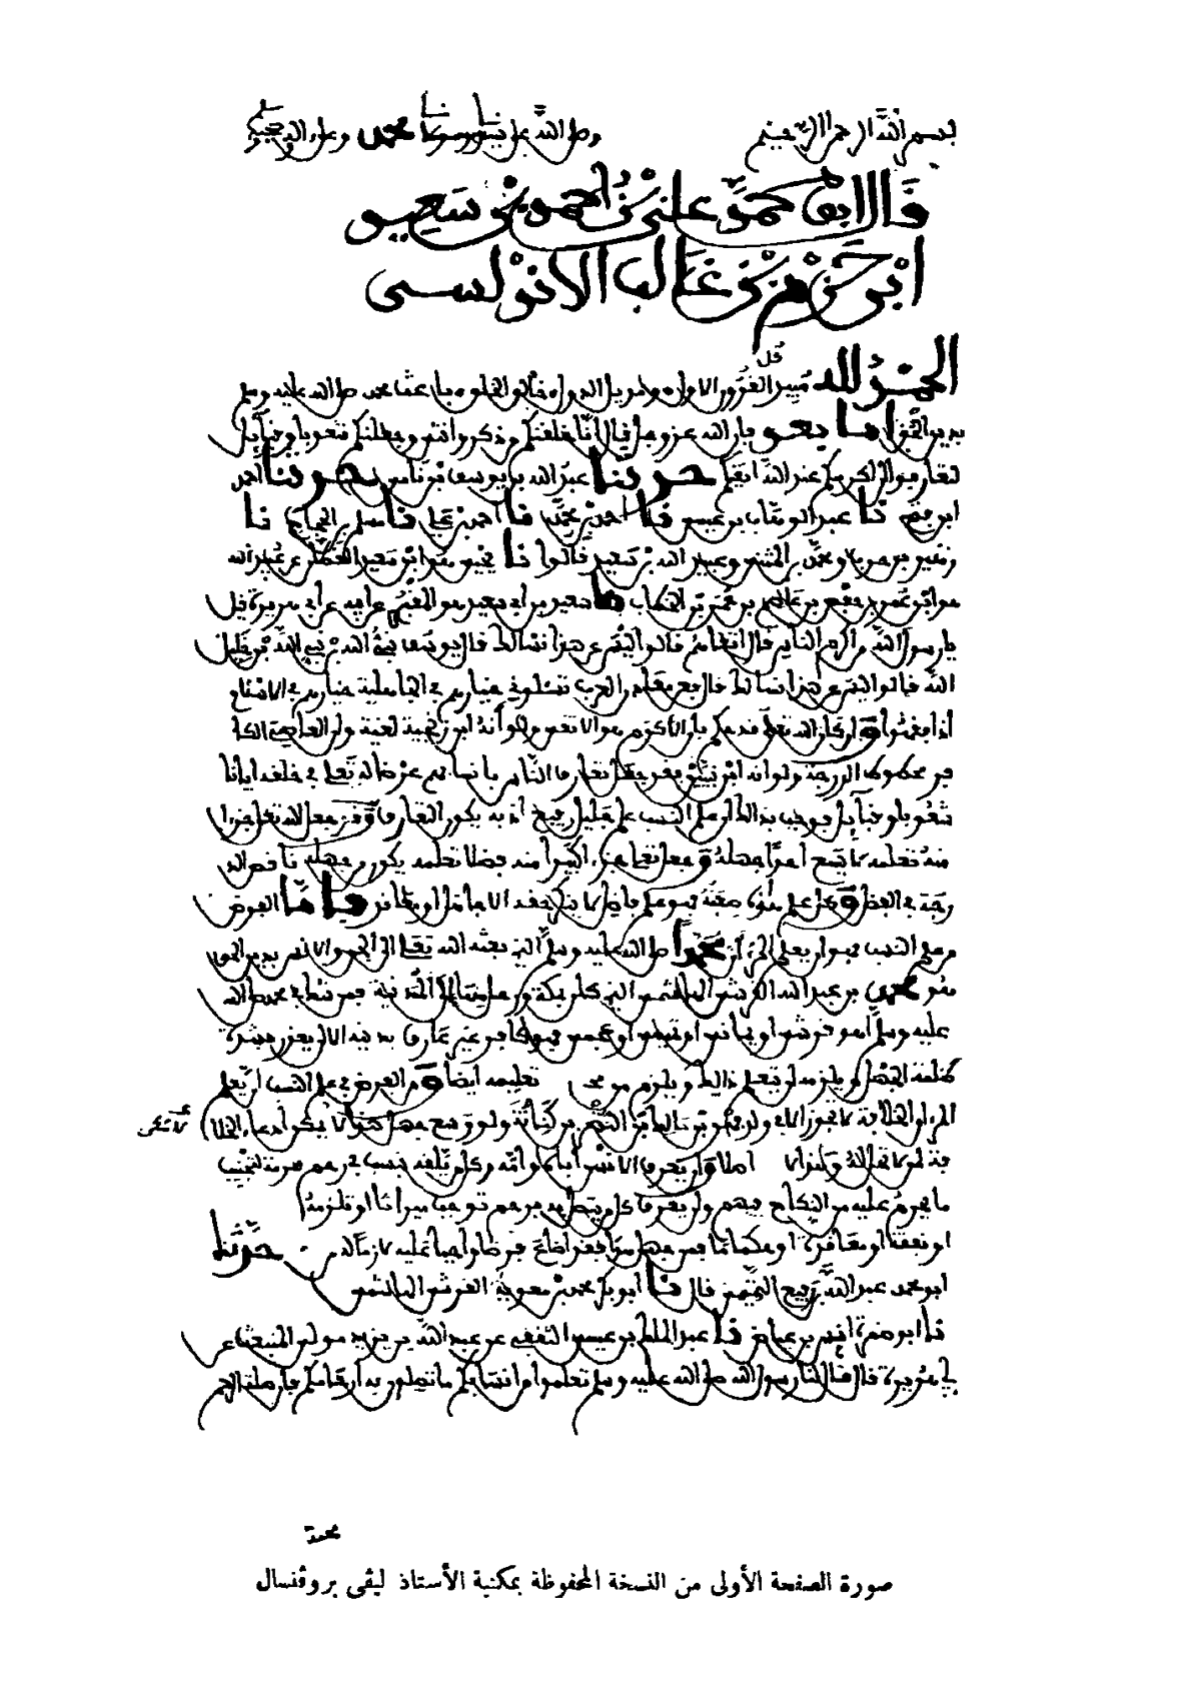 بسم الله الرحمن الرحيم وصلى الله على نبينا وسيدنا محمد وعلى اله وصحبه
قال ابو محمد علي بن احمد بن سعيد
ابن حزم بن غالب الاندلسي
الحمد لله مبيد كل القرون الاول ومديل الدول خالق الخلق باعث محمد صلى الله عليه وسلم
بدين الحق اما بعد فان الله عز وجل قال انا خلقنكم من ذكر وانثى وجعلنكم شعوبا وقبايل
لتعارفوا ان اكرمكم عند الله اتقيكم حدثنا عبد الله بن يوسف بن نامي حدثنا احمد
ابن فتح نا عبد الوهاب بن عيسى نا احمد بن محمد نا احمد بن علي نا مسلم بن الحجاج نا
زهير بن حرب ومحمد بن المثنى وعبيد الله بن سعيد قالوا نا يحيى هو ابن سعيد القطان عن عبيد الله
هو ابن عمر بن حفص بن عاصم بن عمر بن الخطاب نا سعيد بن ابي سعيد هو المقبري عن ابيه عن ابي هريرة قيل
يا رسول الله من اكرم الناس قال اتقاهم قالوا ليس عن هذا نسالك قال يوسف نبي الله بن نبي الله بن خليل
الله قالوا ليس عن هذا نسالك قال فعن معادن العرب تسئلوني خيارهم في الجاهلية خيارهم في الاسلام
اذا فقهوا وان كان الله تعلى قد حكم بان الاكرم هو الاتقى ولو انه ابن زنجية لغية وان العاصي الكافر
محطوط الدرجة ولو انه ابن نبيين فقد جعل تعارف الناس بانسابهم غرضا له تعلى في خلقه ايانا
شعوبا وقبايل فوجب بذلك ان علم النسب علم جليل رفيع اذ به يكون التعارف وقد جعل الله تعلى جزءا
منه تعلمه لا يسع احدا جهله وجعل تعلى جزءا يسيرا منه فضلا تعلمه يكون من جهله ناقص الدر
رجة في الفضل وكل علم هذه صفته فهو علم فاضل لا ينكر حقه الا جاهل او معاند فاما الفرض
من علم النسب فهو ان يعلم المرء ان محمدا صلى الله عليه وسلم الذي بعثه الله تعلى الى الجن والانس بدين الحق
هو محمد بن عبد الله القرشي الهاشمي الذي كان بمكة ورحل منها الى المدينة فمن شك في محمد صلى الله
عليه وسلم اهو قرشي او يماني او تميمي او عجمي فهو كافر غير عارف بدينه الا ان يعذر بشدة
ظلمة الجهل ويلزمه ان يتعلم ذالك ويلزم من تعليمه ايضا ومن الفرض في علم النسب ان يعلم
المرء ان الخلافة لا تجوز الا في ولد فهر بن مالك بن النضر بن كنانة ولو وسع جهل هذا لامكن ادعاء الخلا
ما يحرم عليه من النكاح فيهم وان يعرف كل من يتصل به برحم توجب ميراثا او تلزمه
او نفقة او معاقدة او حكما ما فمن جهل هذا فقد اضاع فرضا واجبا عليه لازما له من حدثنا
ابو محمد عبد الله بن ربيع التميمي قال نا ابو بكر محمد بن معوية القرشي الهاشمي
نا ابو ضمرة انس بن عياض نا عبد الملك بن عيسى الثقفي عن عبد الله بن يزيد مولى المنبعث عن
ابي هريرة قال قال لنا رسول الله صلى الله عليه وسلم تعلموا من انسابكم ما تصلون به ارحامكم فان صلة الرحم
محبة
صورة الصفحة الأولى من النسخة المحفوظة بمكتبة الأستاذ ليفى بروفنسال